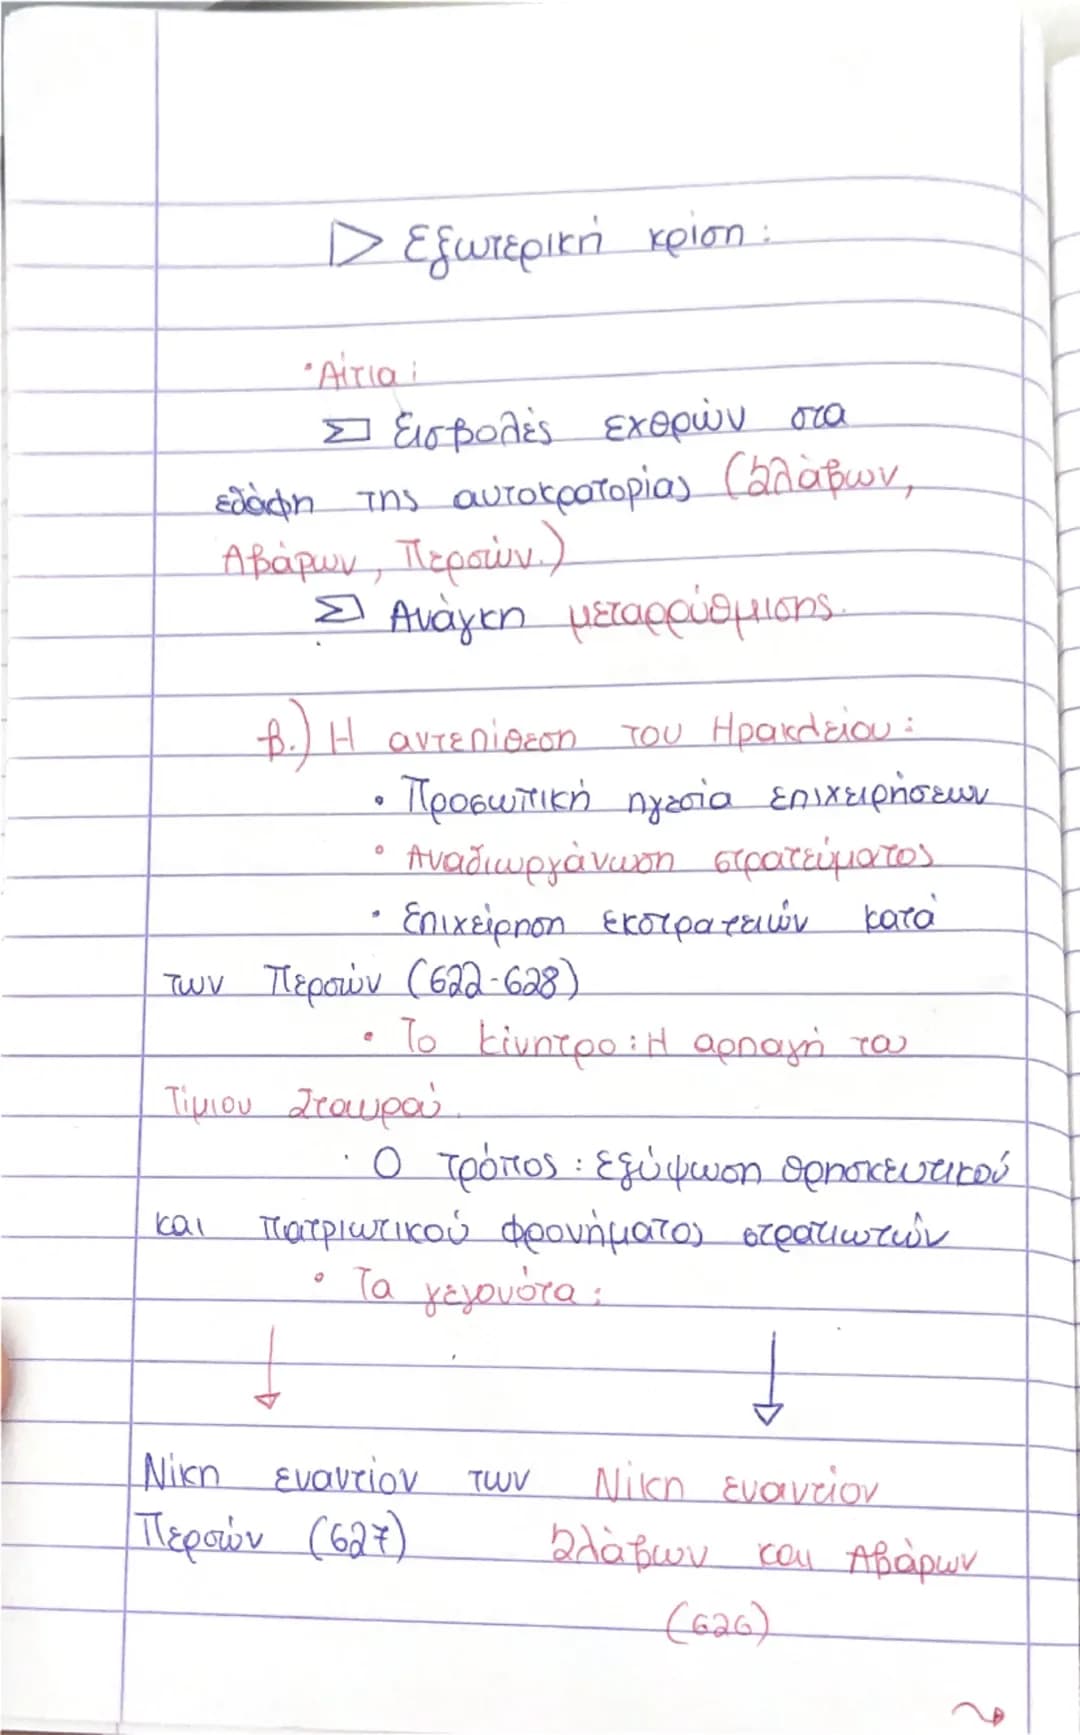 ▷ Εξωτερική κρίση:
• Αίτια:
Εισβολές εχθρών στα
εδάφη της αυτοκρατορίας (Σλάβων,
Αβάρων, Περσών.)
Ανάγκη μεταρρύθμισης.
β.) Η αντεπίθεση του Ηρακλείου:
• Προσωπική ηγεσία επιχειρήσεων
• Αναδιωργάνωση στρατεύματος
• Επιχείρηση εκστρατειών κατά
των Περσών (622-628)
• Το κίνητρο: Η αρπαγή του
Τίμιου Σταυρού.
• Ο τρόπος: εξύψωση θρησκευτικού
και πατριωτικού φρονήματος στρατιωτών
• Τα γεγονότα:
Νίκη εναντίον των Περσών (627)
Νίκη εναντίον
Σλάβων και Αβάρων
(626)